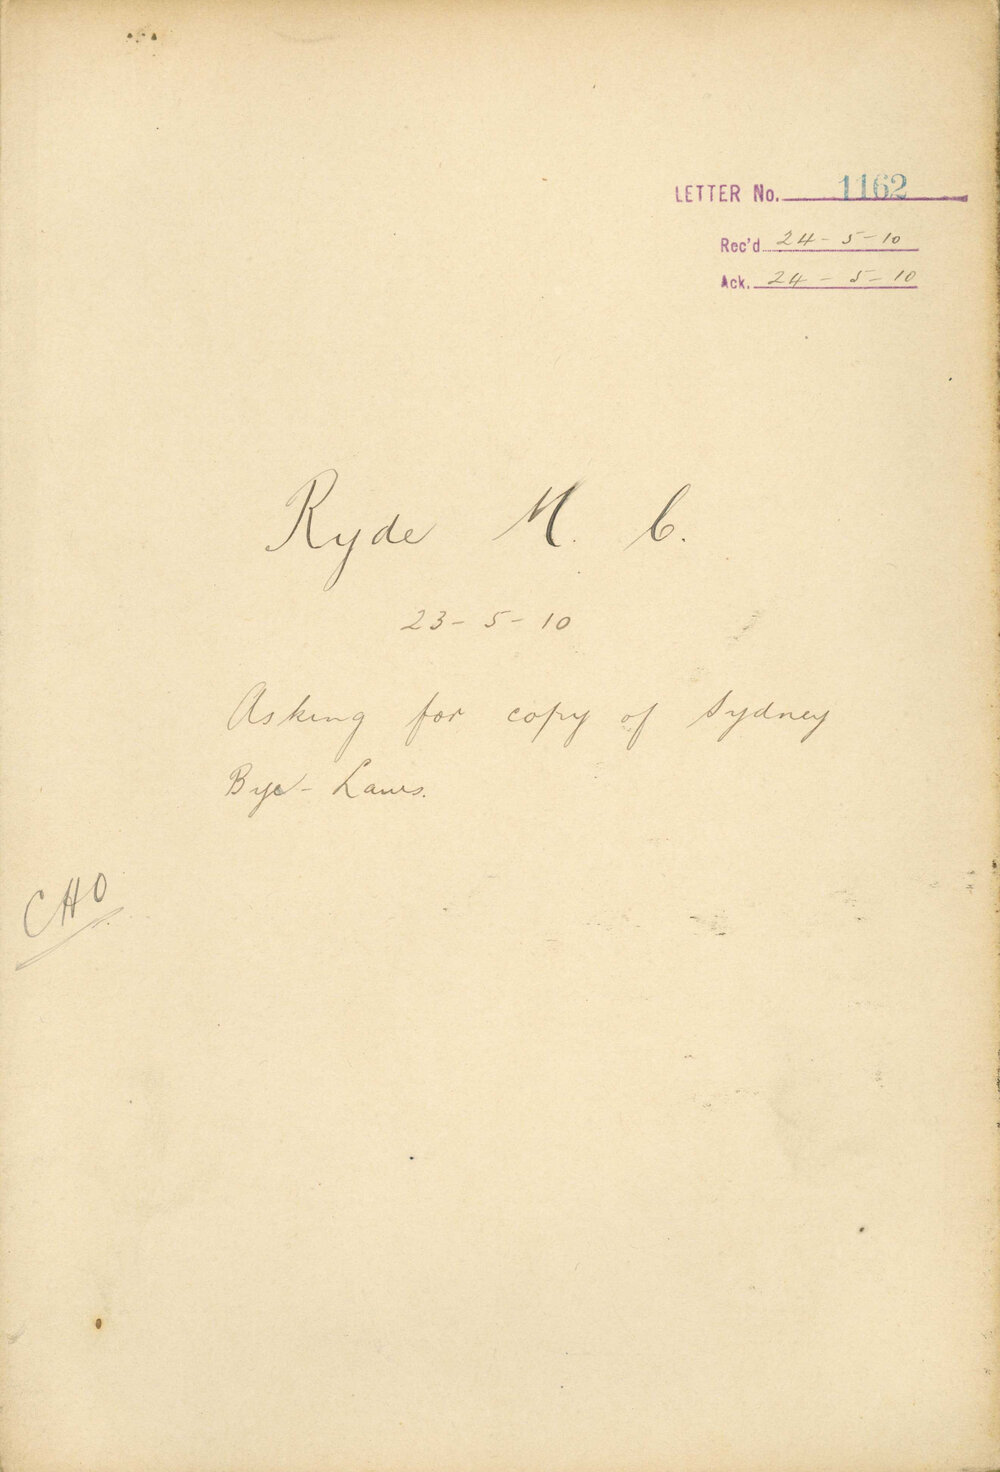 LETTER No. 1162
Rec'd 24-5-10
Ack. 24-5-10
Ryde M. C.
23-5-10
Asking for copy of Sydney
Bye-Laws.
CHO